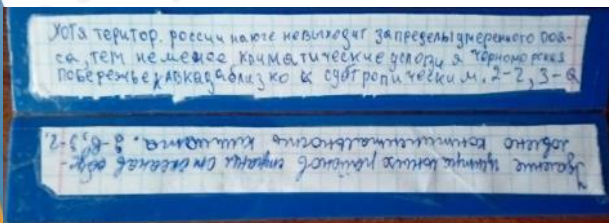 Хотя територ. россии на юге невыходит за пределы умеренного поя-
са, тем неменее климатические условия черноморская
побережье кавказа близко к субтропическим. 2-2, 3-а
Удаление центральных районов страны от океанов обус-
ловлено континентальность климата. 3-в, 3-2.